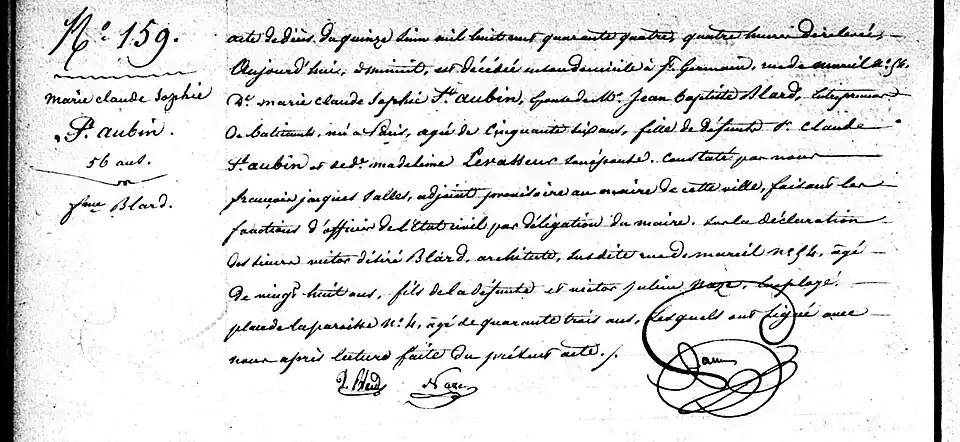 N.º 159.
marie claude Sophie
S.t aubin.
56 ans.
f.me Blard.
acte de décès du quinze Juin mil huit cent quarante quatre, quatre heures de relevée,
Aujourd'hui, à minuit, est décédée en son domicile à S.t Germain, rue de mareil n.º 54,
D.e marie claude Sophie S.t aubin, épouse de M.r Jean Baptiste Blard, Entrepreneur
de batiments, née à Paris, agée de Cinquante six ans, fille de défunts S.r Claude
S.t aubin et de d.e madeleine Levasseur son épouse. Constaté par nous
françois jacques Salles, adjoint provisoire au maire de cette ville, faisant les
fonctions d'officier de l'Etat civil par délégation du maire. sur la déclaration
des sieurs victor désiré Blard, architecte, susdite rue de mareil n.º 54, âgé
de vingt huit ans, fils de la défunte et victor julien Naze, employé,
place de la paroisse n.º 4, âgé de quarante trois ans, Lesquels ont signé avec
nous après lecture faite du présent acte. /.
Blard Naze